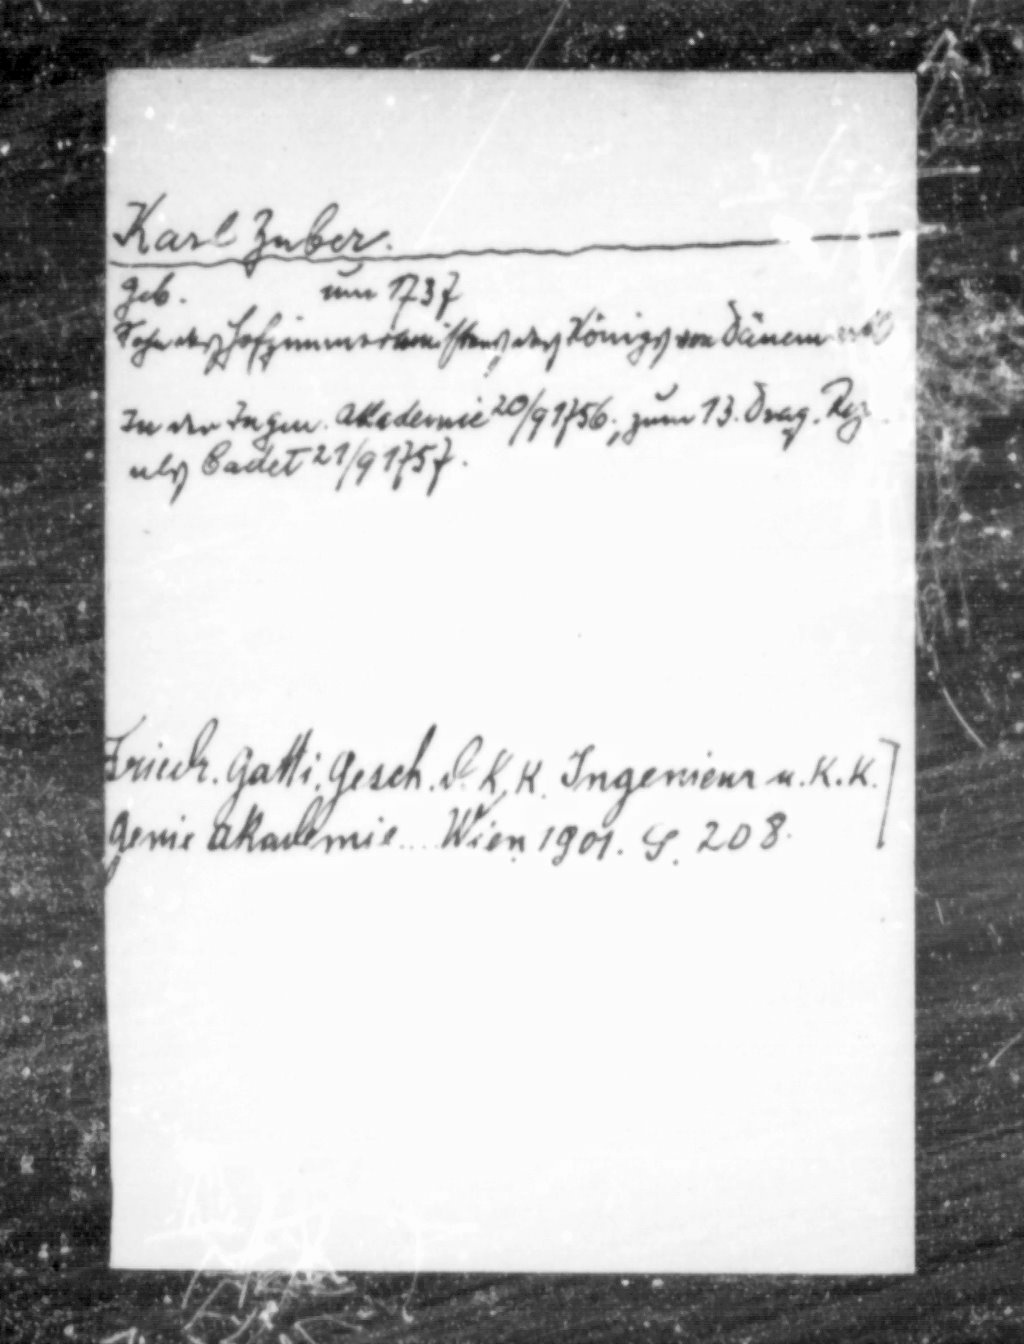 Karl Zuber.
geb. um 1737
Sohn des Hofzimmermeisters des Königs von Dänemark
In der Ingen. Akademie 20/9 1756., zum 13. Drag. Rg
als Cadet 21/9 1757.
Friedr. Gatti, Gesch. d. K. K. Ingenieur u. K. K.
Genie Akademie... Wien 1901. S. 208.